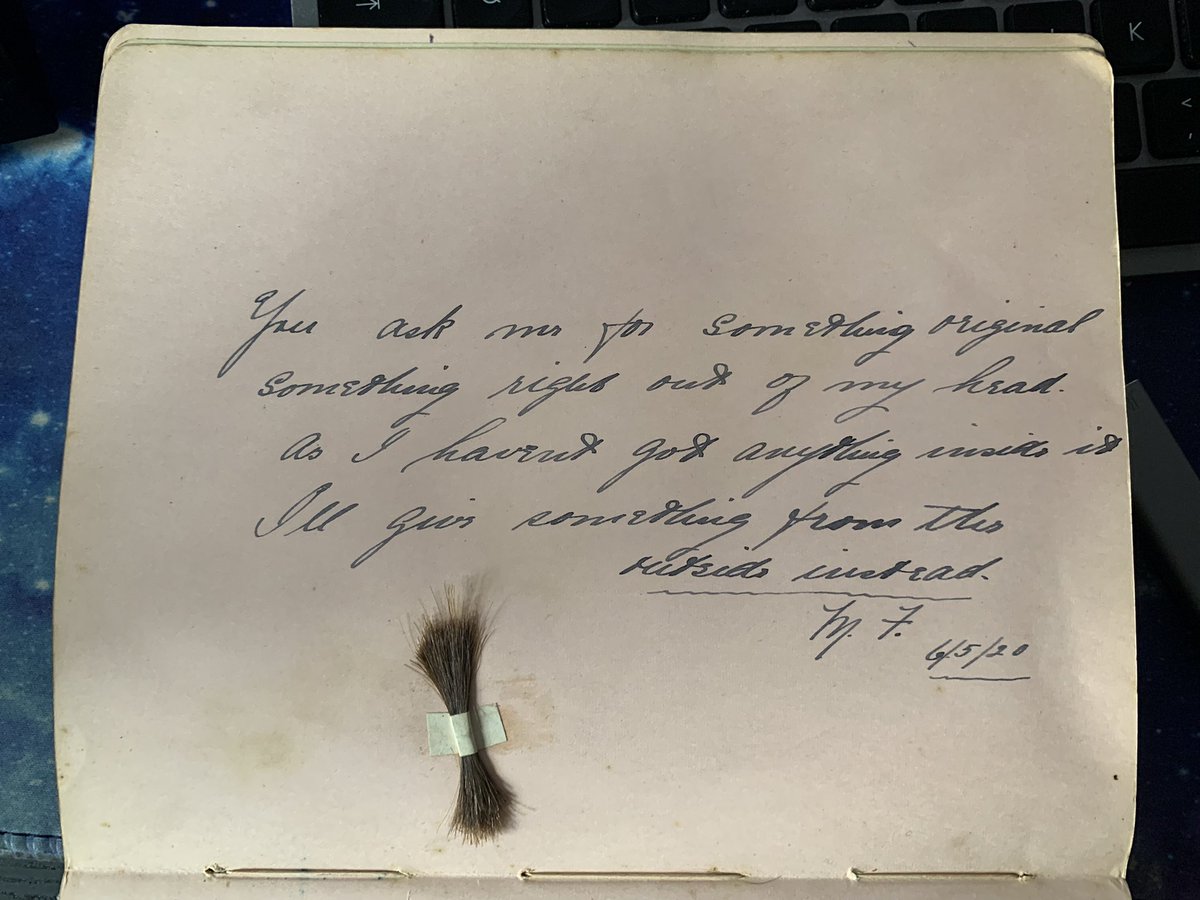 You ask me for something original
something right out of my head.
As I havent got anything inside it
I'll give something from the
outside instead.
M. F.
6/5/20
K
<
,